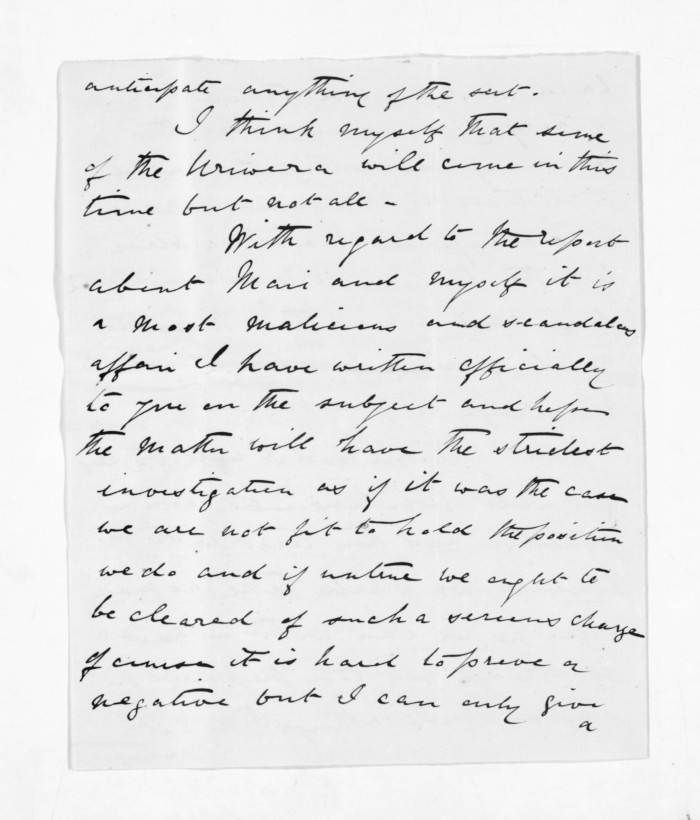 anticipate anything of the sort.
I think myself that some
of the Uriwera will come in this
time but not all -
With regard to the report
about Mair and myself it is
a most malicious and scandalous
affair I have written officially
to you on the subject and hope
the matter will have the strictest
investigation as if it was the case
we are not fit to hold the position
we do and if untrue we ought to
be cleared of such a serious charge
of course it is hard to prove a
negative but I can only give
a